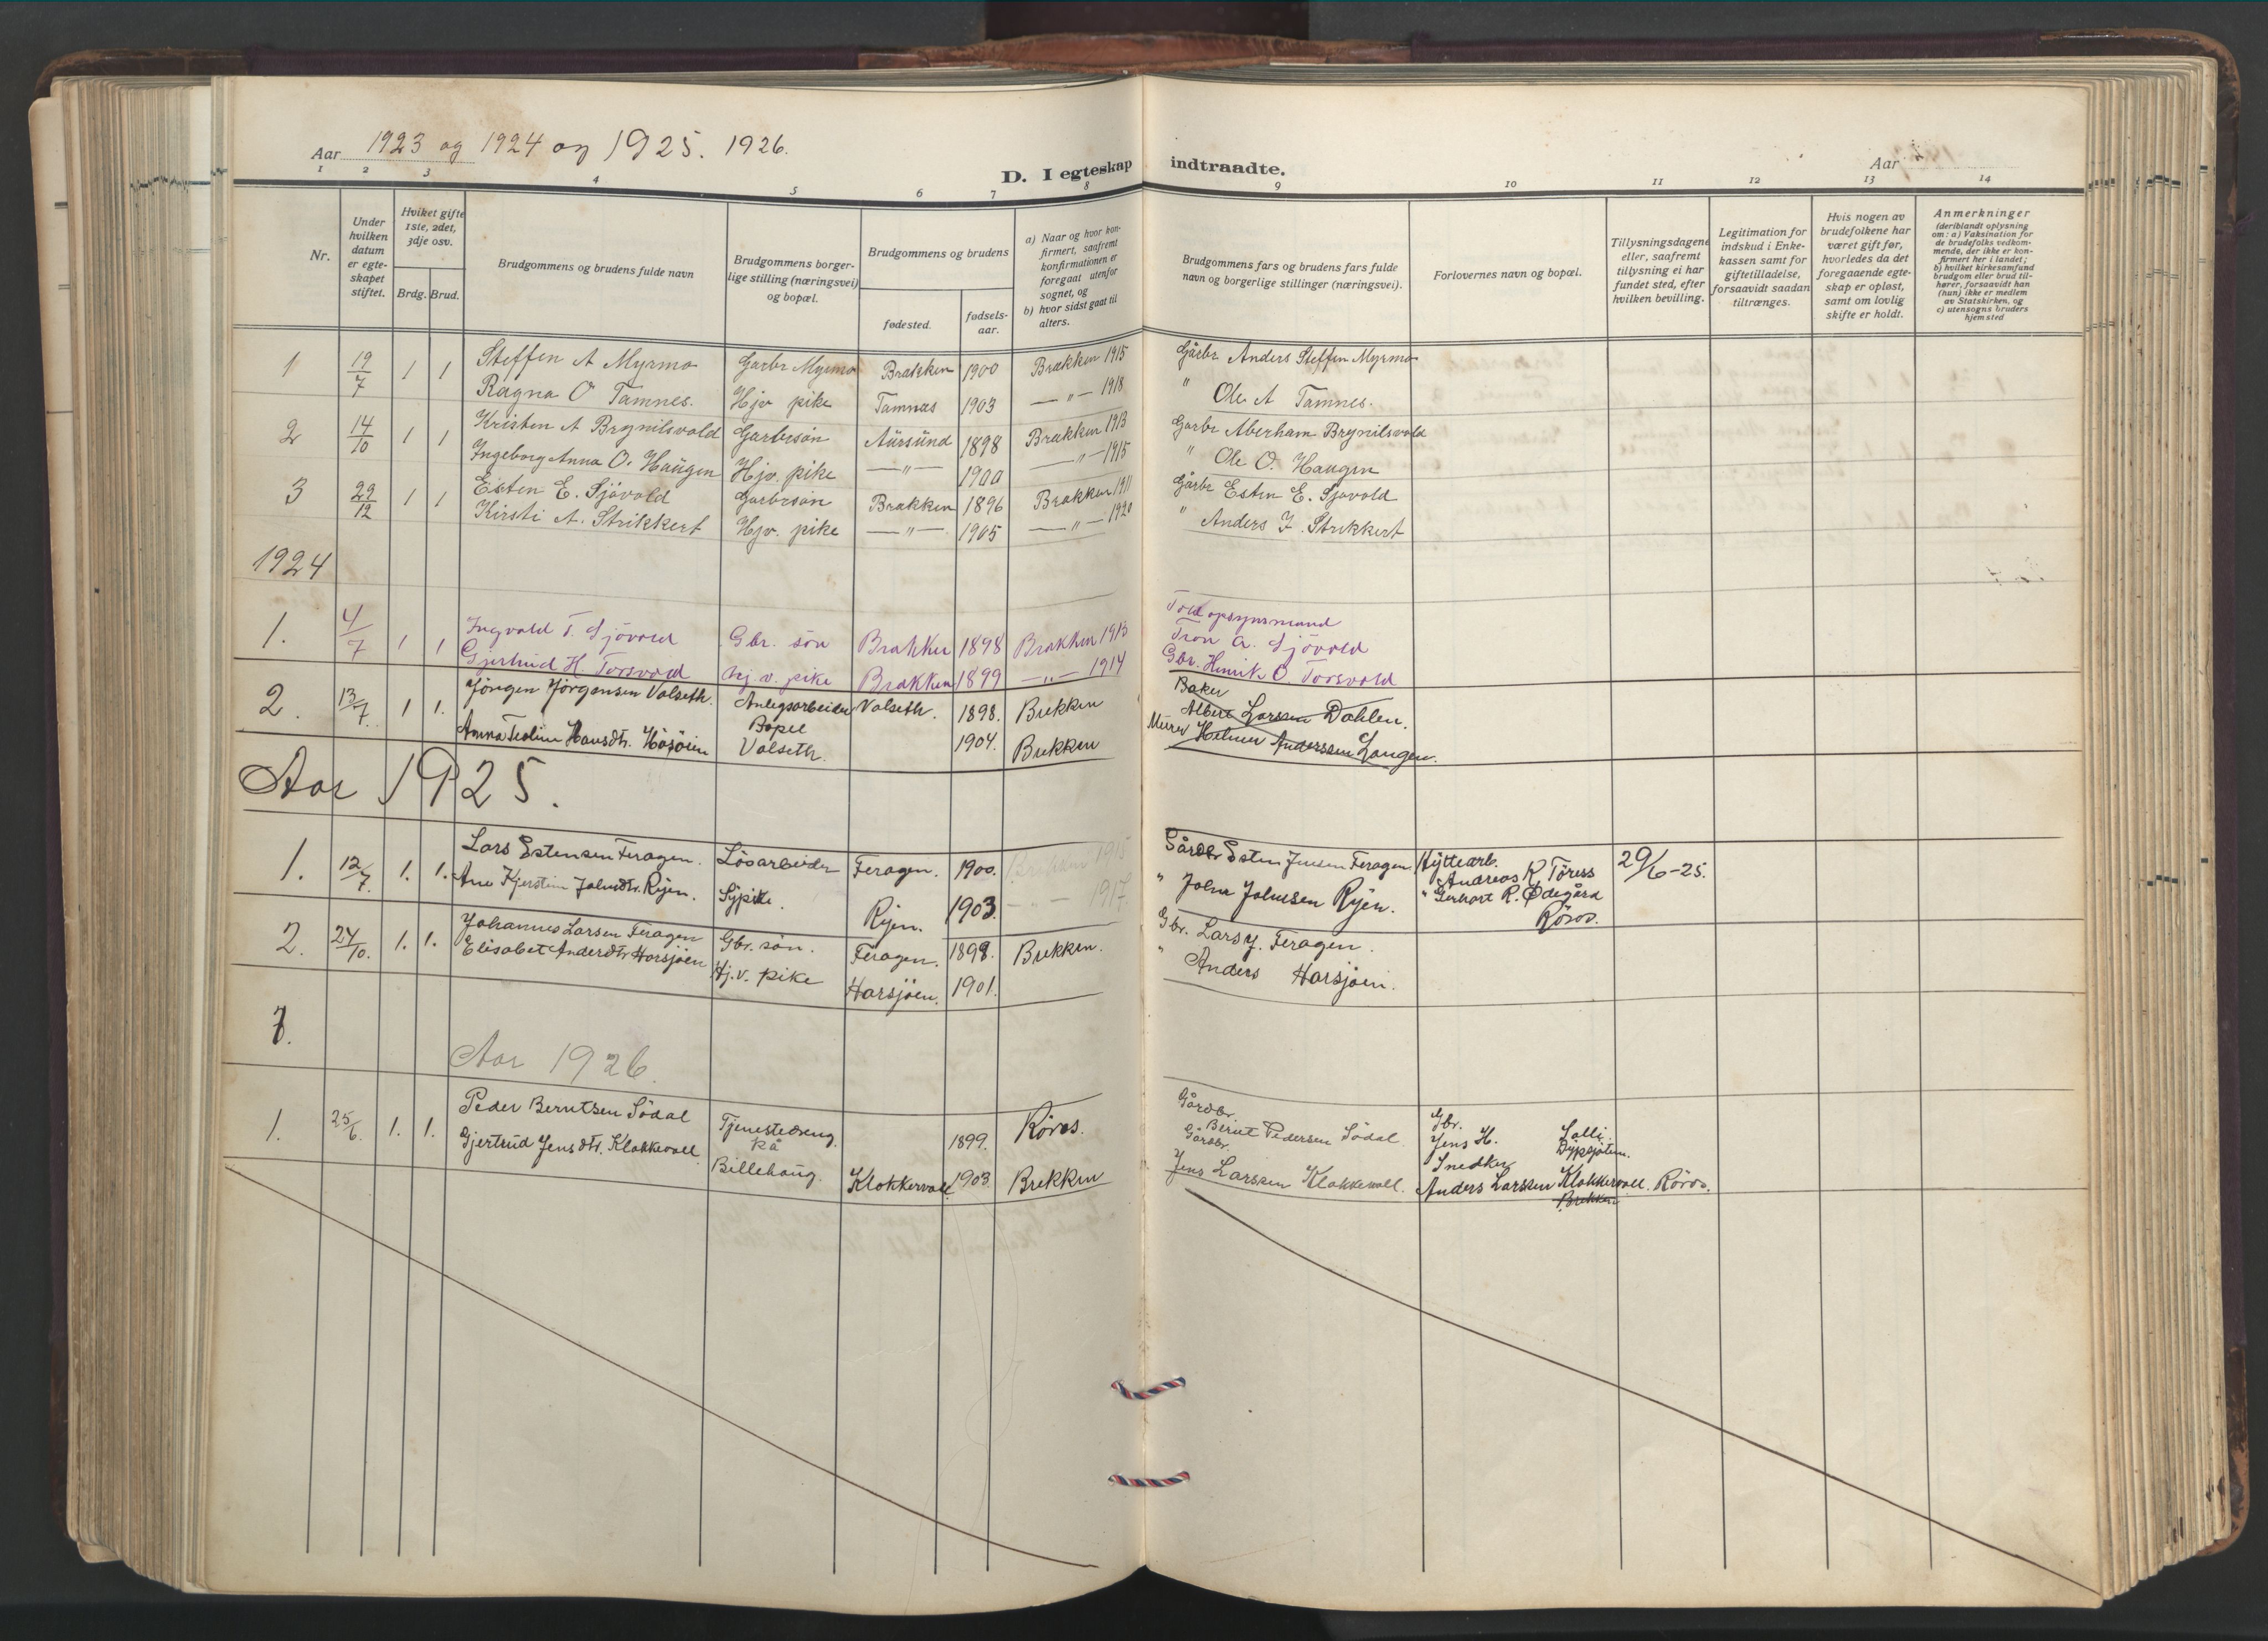 Aar 1923 og 1924 og 1925. 1926.
D. I egteskap indtraadte.
Aar
1 2 3 4 5 6 7 8 9 10 11 12 13 14
Nr.
Under hvilken datum er egte-skapet stiftet.
Hviket gifte 1ste, 2det, 3dje osv.
Brdg. Brud.
Brudgommens og brudens fulde navn
Brudgommens borger-lige stilling (næringsvei) og bopæl.
Brudgommens og brudens
fødested.
fødsels-aar.
a) Naar og hvor kon-firmert, saafremt konfirmationen er foregaat utenfor sognet, og
b) hvor sidst gaat til alters.
Brudgommens fars og brudens fars fulde navn og borgerlige stillinger (næringsvei).
Forlovernes navn og bopæl.
Tillysningsdagene eller, saafremt tillysning ei har fundet sted, efter hvilken bevilling.
Legitimation for indskud i Enke-kassen samt for giftetilladelse, forsaavidt saadan tiltrænges.
Hvis nogen av brudefolkene har været gift før, hvorledes da det foregaaende egte-skap er opløst, samt om lovlig skifte er holdt.
Anmerkninger (deriblandt oplysning om: a) Vaksination for de brudefolks vedkom-mende, der ikke er kon-firmert her i landet; b) hvilket kirkesamfund brudgom eller brud til-hører, forsaavidt han (hun) ikke er medlem av Statskirken, og c) utensogns bruders hjemsted
1 19/7 1 1 Steffen A Myrmo Garbr Myrmo Brækken 1900 Brækken 1915 Gårbr Anders Steffen Myrmo
Ragna O Tamnes. Hjv pike Tamnæs 1903 — " — 1918 " Ole A Tamnes.
2 14/10 1 1 Kristen A Brynilsvold Garbrsön Aursund 1898 Brækken 1913 Garbr Aberham Brynilsvold
Ingeborg Anna O. Haugen Hjv. pike — " — 1900 — " — 1915 " Ole O. Haugen
3 29/12 1 1 Esten E. Sjövold Garbrsön Brækken 1896 Brækken 1911 Gårbr Esten E. Sjøvold
Kirsti A. Strikkert Hjv. pike — " — 1905 — " — 1920 " Anders J. Strikkert
1924
1. 4/7 1 1 Ingvald T. Sjövold Gbr. sön Brækken 1898 Brækken 1913 Toldopsynsmand Tron A. Sjövold
Gjertrud H. Torsvold hj. v. pike Brækken 1899 — " — 1914 Gbr. Henrik O. Torsvold
2. 13/7. 1 1. Jörgen Jörgensen Valseth. Anlegsarbeider Valseth. 1898. Brekken Baker Albert Larssen Dahlen.
Anna Teoline Hansdtr. Håsöien Bopel Valseth. 1904. Brekken Murer Helmer Anderssen Langen.
Aar 1925.
1. 12/7. 1. 1. Lars Estensen Feragen. Lösarbeider Feragen. 1900. Brekken 1915 Gårdbr Esten Jensen Feragen Hyttearb. Andreas R Töress 29/6-25.
Ane Kjerstine Johnsdtr. Ryen. Sypike. Ryen. 1903. — " — 1917. " John Johnsen Ryen. " Gerhart R. Ødegård Röros.
2. 24/10. 1. 1. Johannes Larsen Feragen Gbr. sön. Feragen. 1898. Brekken. Gbr. Lars J. Feragen.
Elisabet Andersdtr Harsjöen Hj. v. pike Harsjöen. 1901. " Anders Harsjöen.
7.
Aar 1926.
1. 25/6. 1. 1. Peder Berntsen Södal Tjenestedreng. 1899. Röros. Gårdbr. Bernt Pedersen Södal Gbr. Jens H. Galli Dypsjölien.
Gjertrud Jensdtr. Klokkervoll på Billehaug. Klokkervoll 1903. Brekken Gårdbr. Jens Larssen Klokkervoll. Snedker Anders Larssen Klokkervoll. Röros.
Brekken